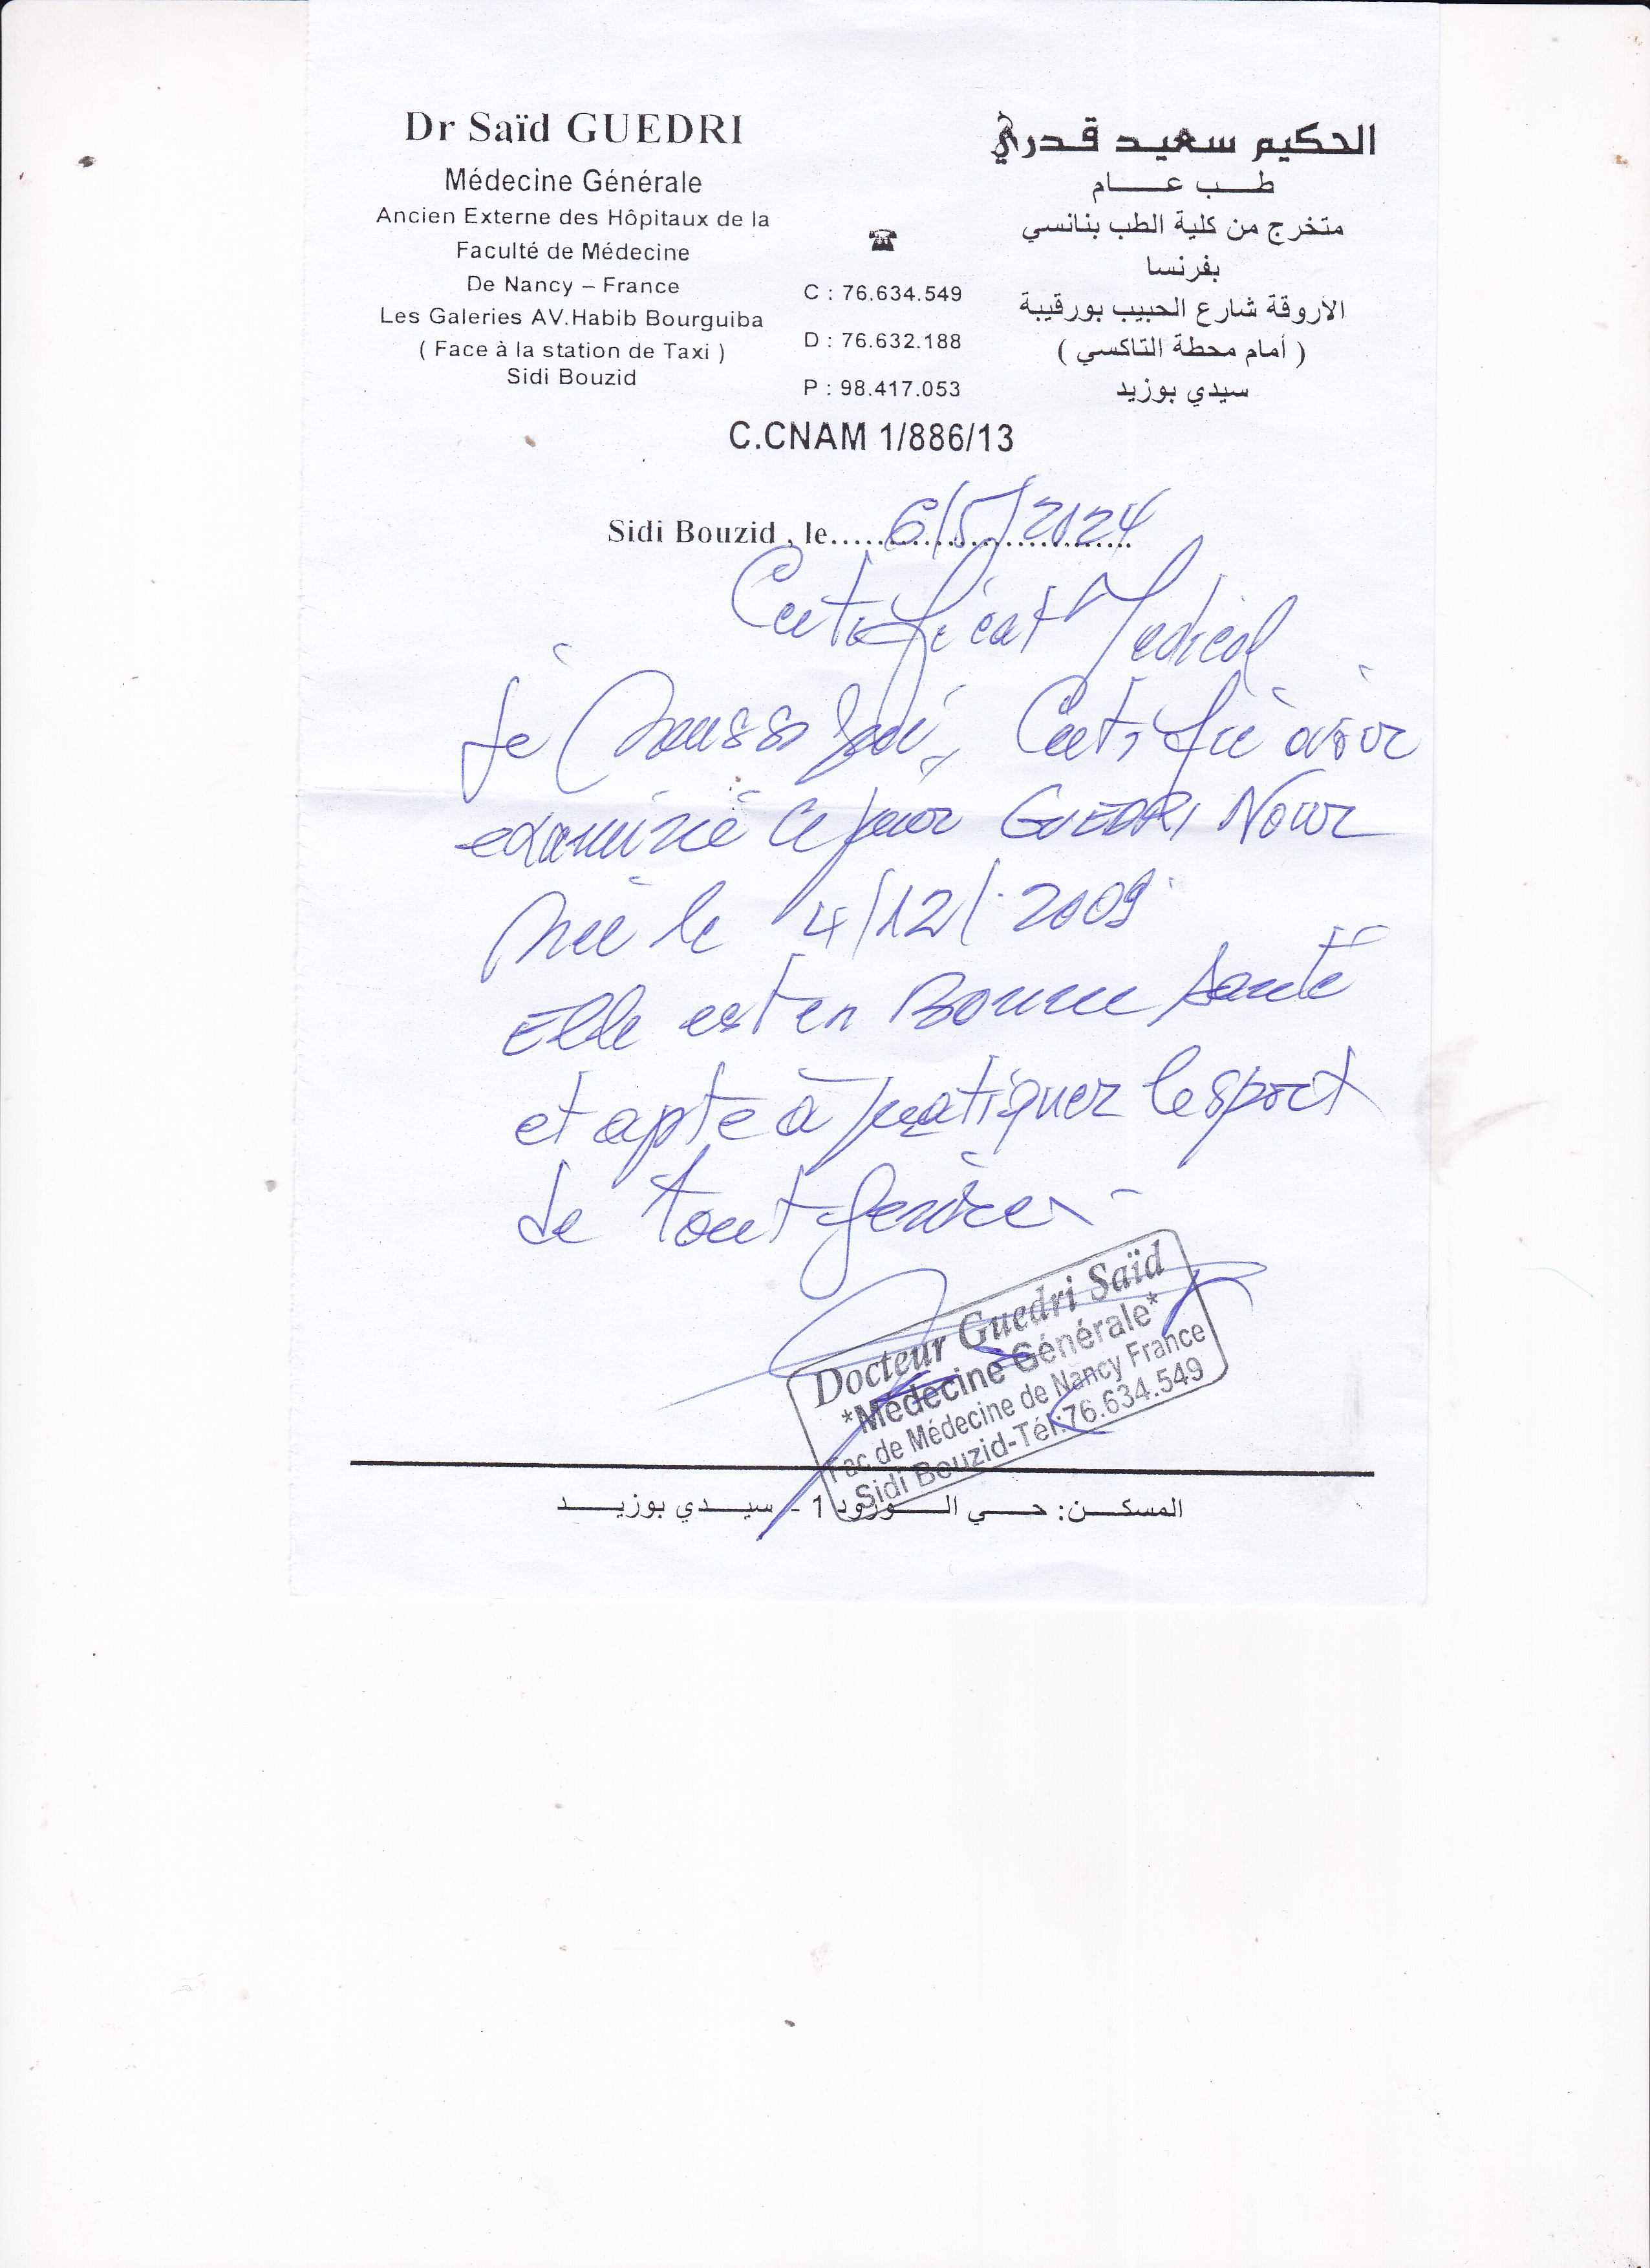 Dr Saïd GUEDRI
Médecine Générale
Ancien Externe des Hôpitaux de la
Faculté de Médecine
De Nancy – France
Les Galeries AV.Habib Bourguiba
( Face à la station de Taxi )
Sidi Bouzid
☎
C : 76.634.549
D : 76.632.188
P : 98.417.053
الحكيم سعيد قدري
طب عام
متخرج من كلية الطب بنانسي
بفرنسا
الأروقة شارع الحبيب بورقيبة
( أمام محطة التاكسي )
سيدي بوزيد
C.CNAM 1/886/13
Sidi Bouzid , le 6/5/2024
Certificat Medical
Je Soussigné, Certifie avoir
examiné ce jour GUEDRI Nour
née le 4/12/2009
Elle est en Bonne santé
et apte à pratiquer le sport
de tout
Docteur Guedri Saïd
*Médecine Générale*
Fac de Médecine de Nancy France
Sidi Bouzid-Tél:76.634.549
المسكن: حي الورود 1 - سيدي بوزيد